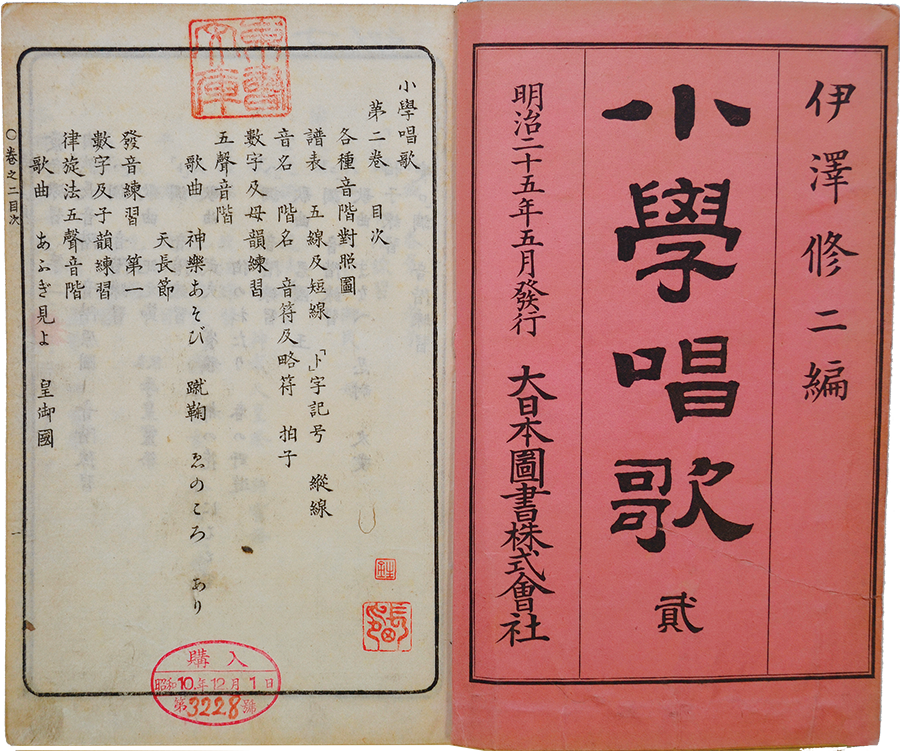 伊澤修二編
小學唱歌
貳
明治二十五年五月發行
大日本圖書株式會社
小學唱歌
第二卷　目次
各種音階對照圖
譜表　五線及短線　「ト」字記号　縱線
音名　階名　音符及略符　拍子
數字及母韻練習
五聲音階
歌曲　神樂あそび　蹴鞠　ゑのころ　あり
天長節
發音練習　第一
數字及子韻練習
律旋法五聲音階
歌曲　あふぎ見よ　皇御國
○卷之二目次
一
購入
昭和10年12月1日
第3228號